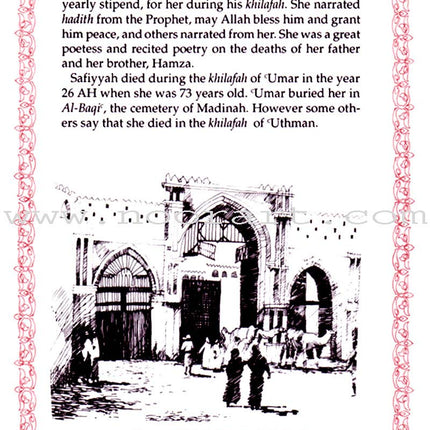 yearly stipend, for her during his khilafah. She narrated
hadith from the Prophet, may Allah bless him and grant
him peace, and others narrated from her. She was a great
poetess and recited poetry on the deaths of her father
and her brother, Hamza.
Safiyyah died during the khilafah of ʿUmar in the year
26 AH when she was 73 years old. ʿUmar buried her in
Al-Baqiʿ, the cemetery of Madinah. However some oth-
ers say that she died in the khilafah of ʿUthman.
www.noorart.com